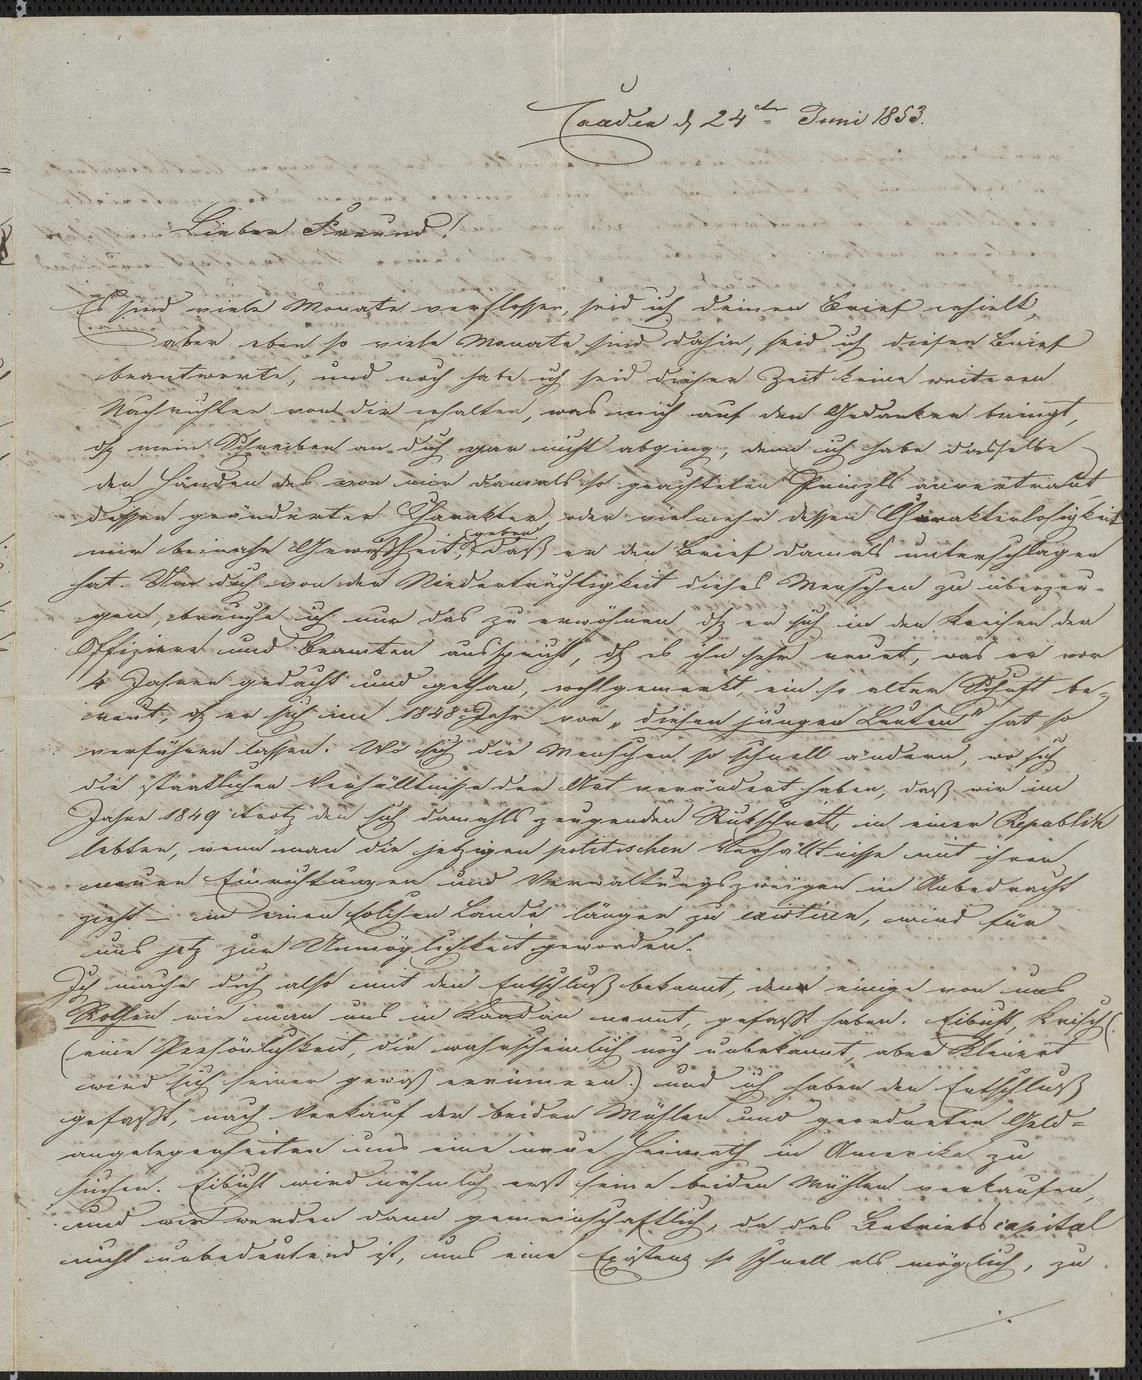 Caaden d 24ten Juni 1853.
Lieber Freund!
Es sind viele Monate verflossen, seid ich deinen Brief erhielt,
aber eben so viele Monate sind dahin, seid ich diesen Brief
beantworte, und noch habe ich seid dieser Zeit keine weiteren
Nachrichten von dir erhalten, was mich auf den Gedanken bringt,
dß mein Schreiben an dich gar nicht abging, denn ich habe dasselbe
den Händen des von mir damals so geachteten Prinzls anvertraut,
dessen geänderter Charakter, oder vielmehr dessen Charakterlosigkeit
mir beinahe Gewißheit geben, daß er den Brief damals unterschlagen
hat. Um dich von der Niederträchtigkeit dieses Menschen zu überzeu-
gen, brauche ich nur das zu erwöhnen, dß er sich in den Kreisen der
Offiziere und Beamten ausspricht, dß es ihn sehr reuet, was er vor
4 Jahren gedacht und gethan, wohlgemerkt, ein so alter Schuft be-
reut, dß er sich im 1848 Jahr von „diesen jungen Leuten" hat so
verführen lassen. Wo sich die Menschen so schnell ändern, wo sich
die staatlichen Verhälltnisse der Art verändert haben, daß wir im
Jahre 1849 trotz den sich damahls zeugenden Rükschritt, in einer Republik
lebten, wenn man die jetzigen politischen Verhältnisse mit ihren
neuen Einrichtungen und Verwaltungszweigen in Anbedracht
zieht – in einen solchen Lande länger zu existiren, wird für
uns jetz zur Unmöglichkeit geworden.
Ich mache dich also mit den Entschluß bekannt, den einige von uns
Rothen wie man uns in Kaaden nennt, gefaßt haben. Eibicht, Krisch
(eine Persönlichkeit, die wahrscheinlich noch unbekannt, aber Kleinert
wird sich seiner gewiß errinnern) und ich haben den Entschluß
gefaßt, nach Verkauf der beiden Mühlen und geordneten Geld-
angelegenheiten uns eine neue Heimath in Amerika zu
suchen. Eibicht wird nähmlich erst seine beiden Mühlen verkaufen,
und wir werden dann gemeinschaftlich, da das Betriebscapital
nicht unbedeutend ist, uns eine Existenz so schnell als möglich, zu